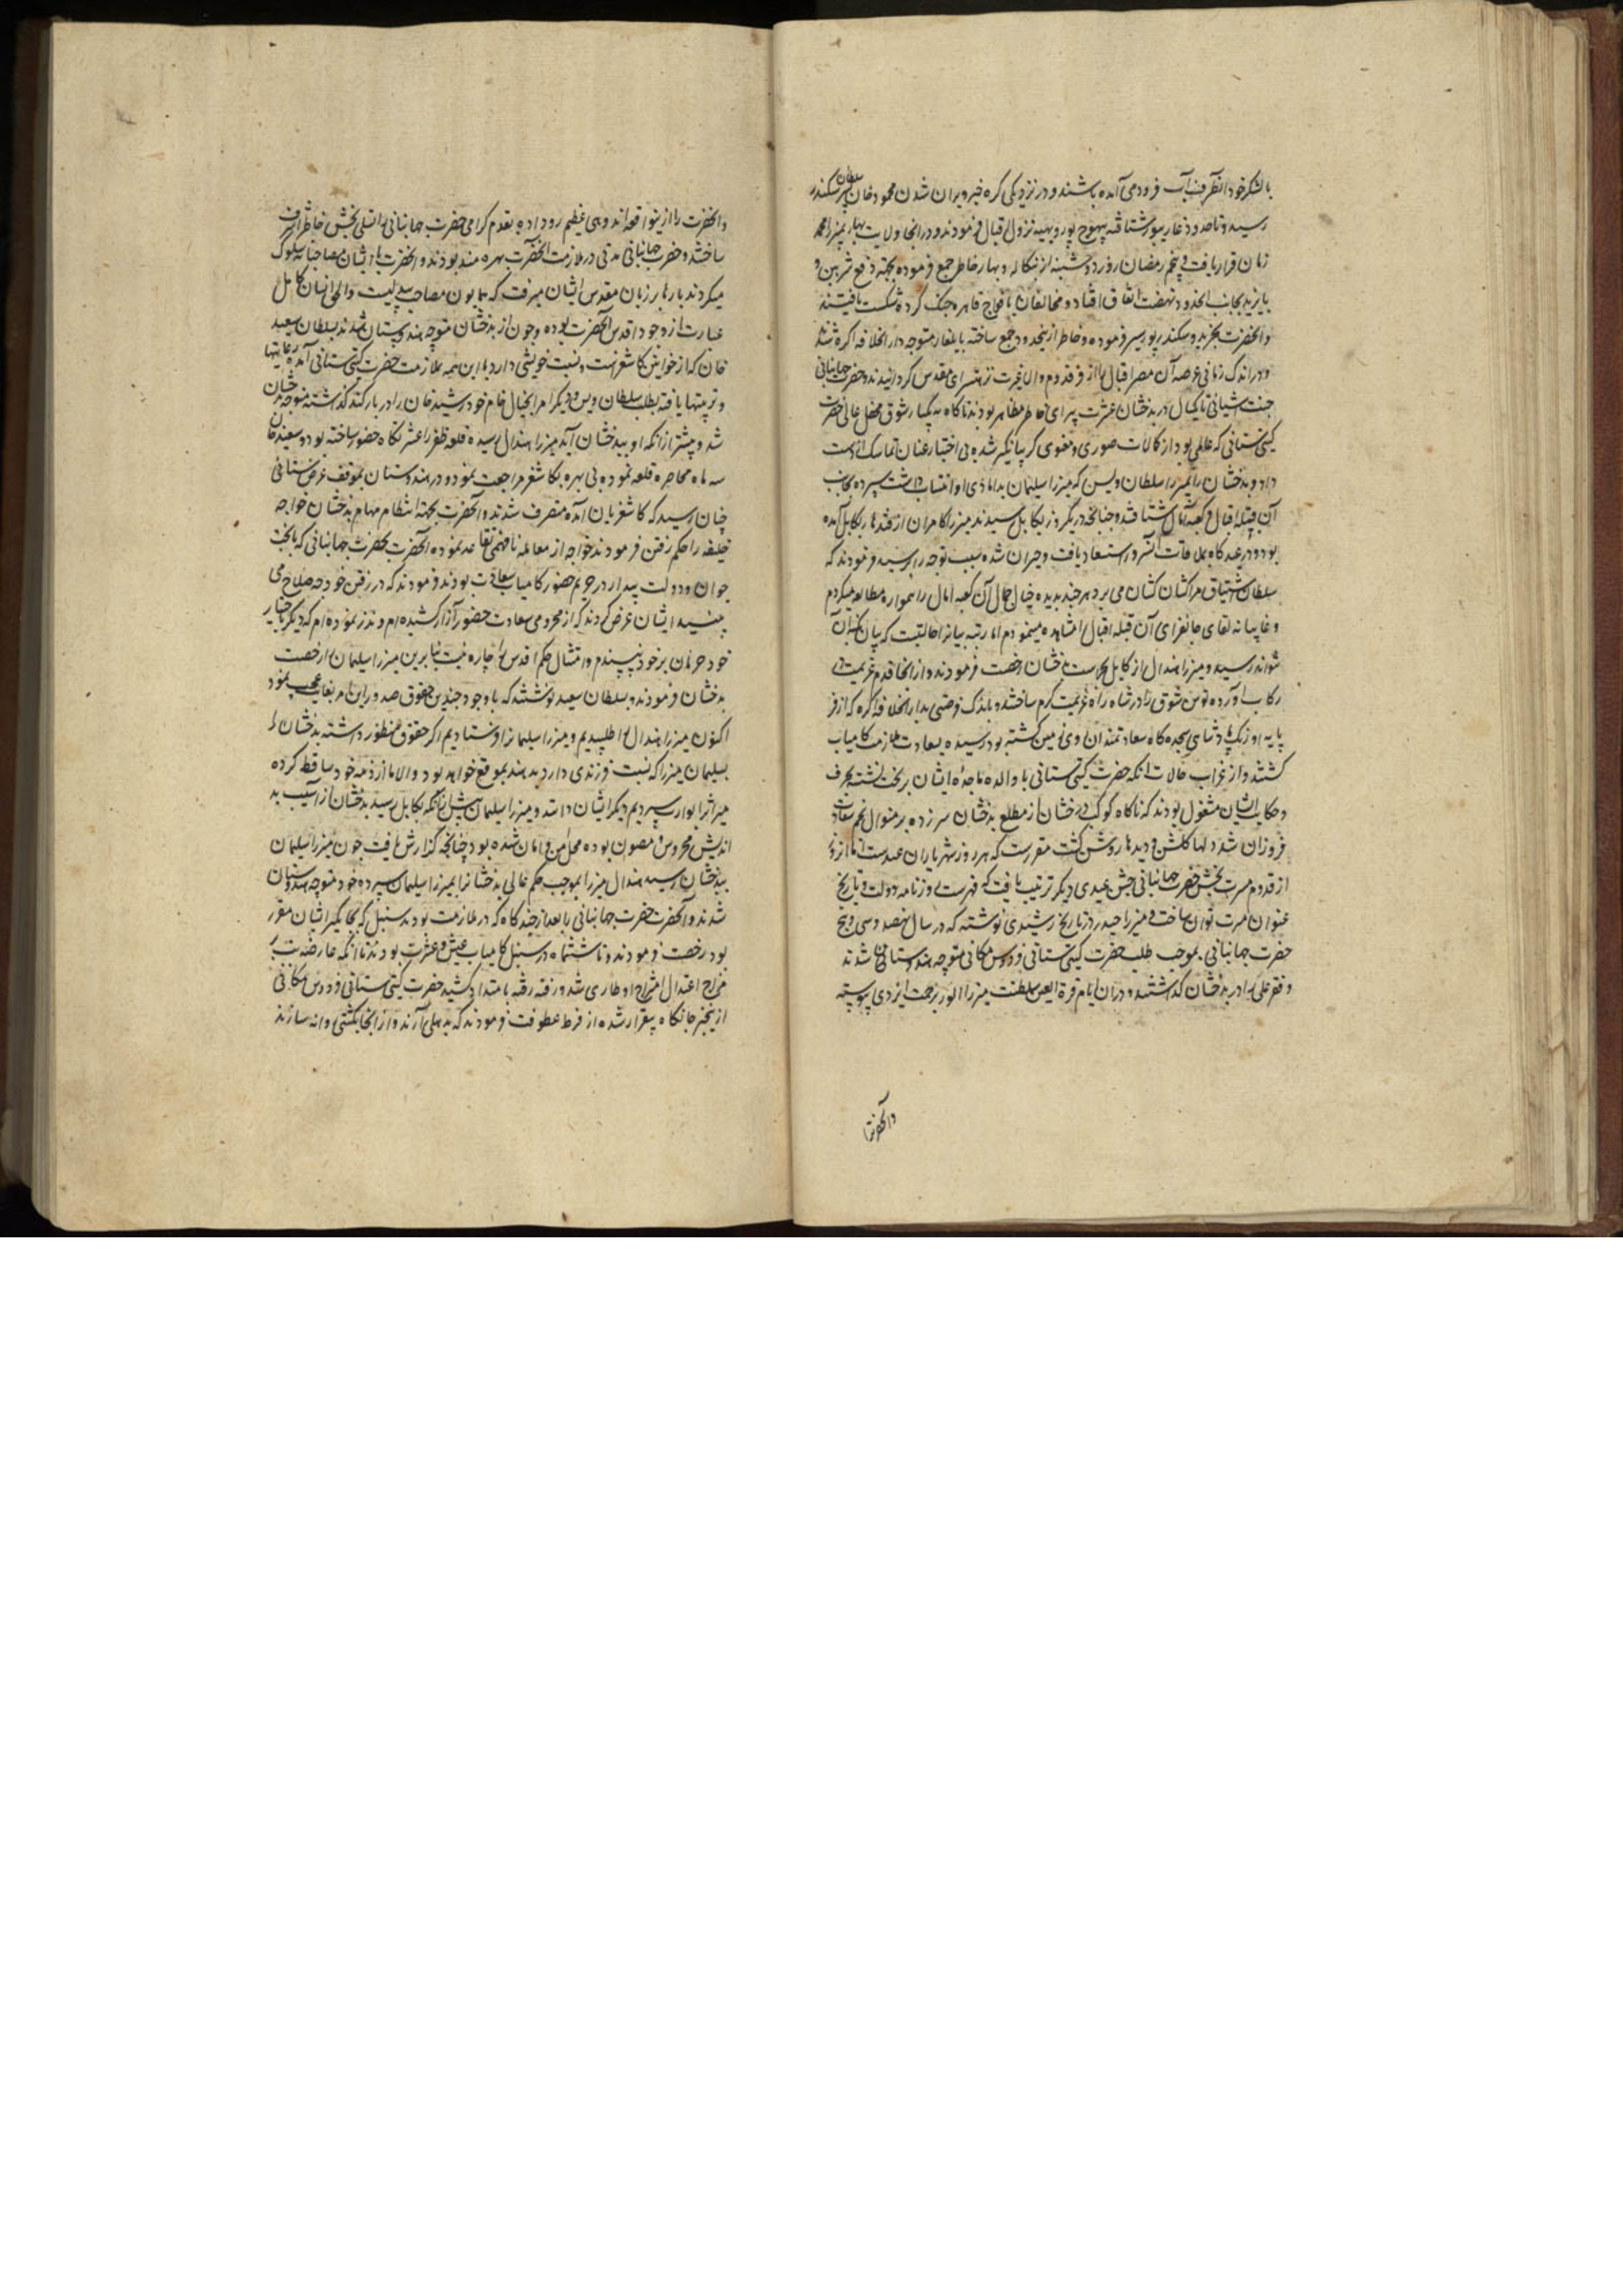 با لشکر خود از آنطرف آب فرود می آمده باشند و در نزدیکی کره خبر ویران شدن محمود خان پسر سلطان سکندر
رسید و تا حدود غازیپور شتافته بهوج پور و بهیه نزول اقبال فرمودند و در آنجا ولایت بهار بمیرزا محمد
زمان قرار یافت و پنجم رمضان روز دوشنبه از بنکاله و بهار خاطر جمع فرموده بجهة دفع شر بین و
بایزید بجانب نهضت اتفاق افتاد و مخالفان با افواج قاهره جنک کرده شکست یافتند
و آنحضرت بخرید و سکندرپور سیر فرموده و خاطر از آنحدود جمع ساخته بایلغار متوجه دار الخلافه اکره شدند
و در اندک زمانی عرصه آن مصر اقبال را از فر قدوم والا غیرت نزهتسرای مقدس کردانیدند و حضرت جهانبانی
جنت آشیانی تا یکسال در بدخشان عشرت پیرای خاطر مظاهر بودند تا کاه بیکبار شوق محفل عالی حضرت
کیتی ستانی که عالمی بود از کمالات صوری و معنوی کریبانکیر شده بی اختیار عنان تماسک از دست
داد و بدخشان را بمیرزا سلطان ویس که میرزا سلیمان بدامادی او انتساب داشت سپرده بجانب
آن قبله اقبال و کعبه آمال شتافتند و چنانچه در یکروز بکابل رسیدند میرزا کامران از قندهار بکابل آمده
بود و در عیدکاه بملاقات آنسرور استسعاد یافت و حیران شده سبب توجه را پرسید فرمودند که
سلطان اشتیاق مرا کشان کشان می برد هر چند بدیده خیال جمال آن کعبه آمال را همواره مطالعه میکردم
و غایبانه لقای جانفزای آن قبله اقبال را مشاهده مینمودم اما رتبه بیانرا حالتیست که بیان بکنه آن
نتواند رسید و میرزا هندال را از کابل بحراست بدخشان رخصت فرمودند و از آنجا قدم عزیمت در
رکاب آورده توسن شوق را در شاه راه عزیمت کرم ساختند و باندک فرصتی بدار الخلافه اکره که از فر
پایه اورنک پادشاهی سجده کاه سعادتمندان روی زمین کشته بود رسیده بسعادت ملازمت کامیاب
کشتند و از غرایب حالات آنکه حضرت کیتی ستانی با والده ماجده ایشان بر تخت نشسته بحرف
و حکایت ایشان مشغول بودند که ناکاه کوکب درخشان از مطلع بدخشان سر زده بر منوال نجم سعادت
فروزان شد دلها کلشن و دیدها روشن کشت مقررست که هر روز شهریاران عید ست اما آنروز
از قدوم مسرت بخش حضرت جهانبانی جشن عیدی دیکر ترتیب یافت که فهرست روزنامه دولت و تاریخ
عنوان مسرت توان ساخت و میرزا حیدر در تاریخ رشیدی نوشته که در سال نهصد و سی و پنج
حضرت جهانبانی بموجب طلب حضرت کیتی ستانی فردوس مکانی متوجه هندوستان شدند
و فقر علی را در بدخشان کذاشتند و در ان ایام قرة العین سلطنت میرزا الور برحمت ایزدی پیوسته
و آنحضرت را
و آنحضرت را ازین واقعه اندوهی عظیم روداده بقدوم کرامی حضرت جهانبانی را تسلی بخش خاطر اشرف
ساختند و حضرت جهانبانی مدتی در ملازمت آنحضرت بهره مند بودند و آنحضرت با ایشان مصاحبانه سلوک
میکردند بارها بر زبان مقدس ایشان میرفت که همایون مصاحب بیبدلیست و الحق انسان کامل
عبارت از وجود اقدس آنحضرت بوده و چون از بدخشان متوجه هندوستان شدند سلطان سعید
خان که از خوانین کاشغر است و نسبت خویشی دارد با این همه بملازمت حضرت کیتی ستانی آمده رعایتها
و تربیتها یافته بطلب سلطان ویس و دیکر امرا بخیال خام خود رشید خان را در یارکند کذاشته متوجه بدخشان
شد و پیشتر ازانکه او ببدخشان آید میرزا هندال رسیده قلعه ظفر را عشرتکاه حضور ساخته بود و سعید خان
سه ماه محاصره قلعه نموده بی بهره بکاشغر مراجعت نمود و در هندوستان بموقف عرض کیتی ستانی
چنان رسید که کاشغریان آمده متصرف شدند و آنحضرت بجهة انتظام مهام بدخشان خواجه
خلیفه را حکم رفتن فرمودند خواجه از معامله نافهمی تقاعد نموده آنحضرت بحضرت جهانبانی که با بخت
جوان و دولت بیدار در حریم حضور کامیاب سعادت بودند فرمودند که در رفتن خود چه صلاح می
بینید ایشان عرض کردند که از محرومی سعادت حضور آزار کشیده ام و نذر نموده ام که دیکر باختیار
خود حرمان بر خود نپسندم و امتثال حکم اقدس را چاره نیست بنابرین میرزا سلیمان را رخصت
بدخشان فرمودند و بسلطان سعید نوشتند که با وجود چندین حقوق صدور این امر بغایت عجب نمود
اکنون میرزا هندال را طلبیدیم و میرزا سلیمانرا فرستادیم اکر حقوق منظور داشته بدخشان را
بسلیمان میرزا که نسبت فرزندی دارد بدهند بموقع خواهد بود والا ما از ذمه خود ساقط کرده
میراث را بوارث سپردیم دیکر ایشان دانند و میرزا سلیمان پیش از آنکه بکابل رسید بدخشان از آسیب بد
اندیش محروس و مصون بوده محل امن و امان شده بود چنانچه کذارش یافت چون میرزا سلیمان
ببدخشان رسید هندال میرزا بموجب حکم عالی بدخشانرا بمیرزا سلیمان سپرده خود متوجه هندوستان
شدند و آنحضرت حضرت جهانبانی را بعد از چندکاه که در ملازمت بودند سنبل که بجایکیر ایشان مقرر
بود رخصت فرمودند و تا ششماه در سنبل کامیاب عیش و عشرت بودند تا آنکه عارضه تب بر
مزاج اعتدال امتزاج او طاری شد و رفته رفته بامتداد کشید حضرت کیتی ستانی فردوس مکانی
ازین خبر جانکاه بیقرار شده از فرط عطوفت فرمودند که بدهلی آرند و از آنجا بکشتی روانه سازند